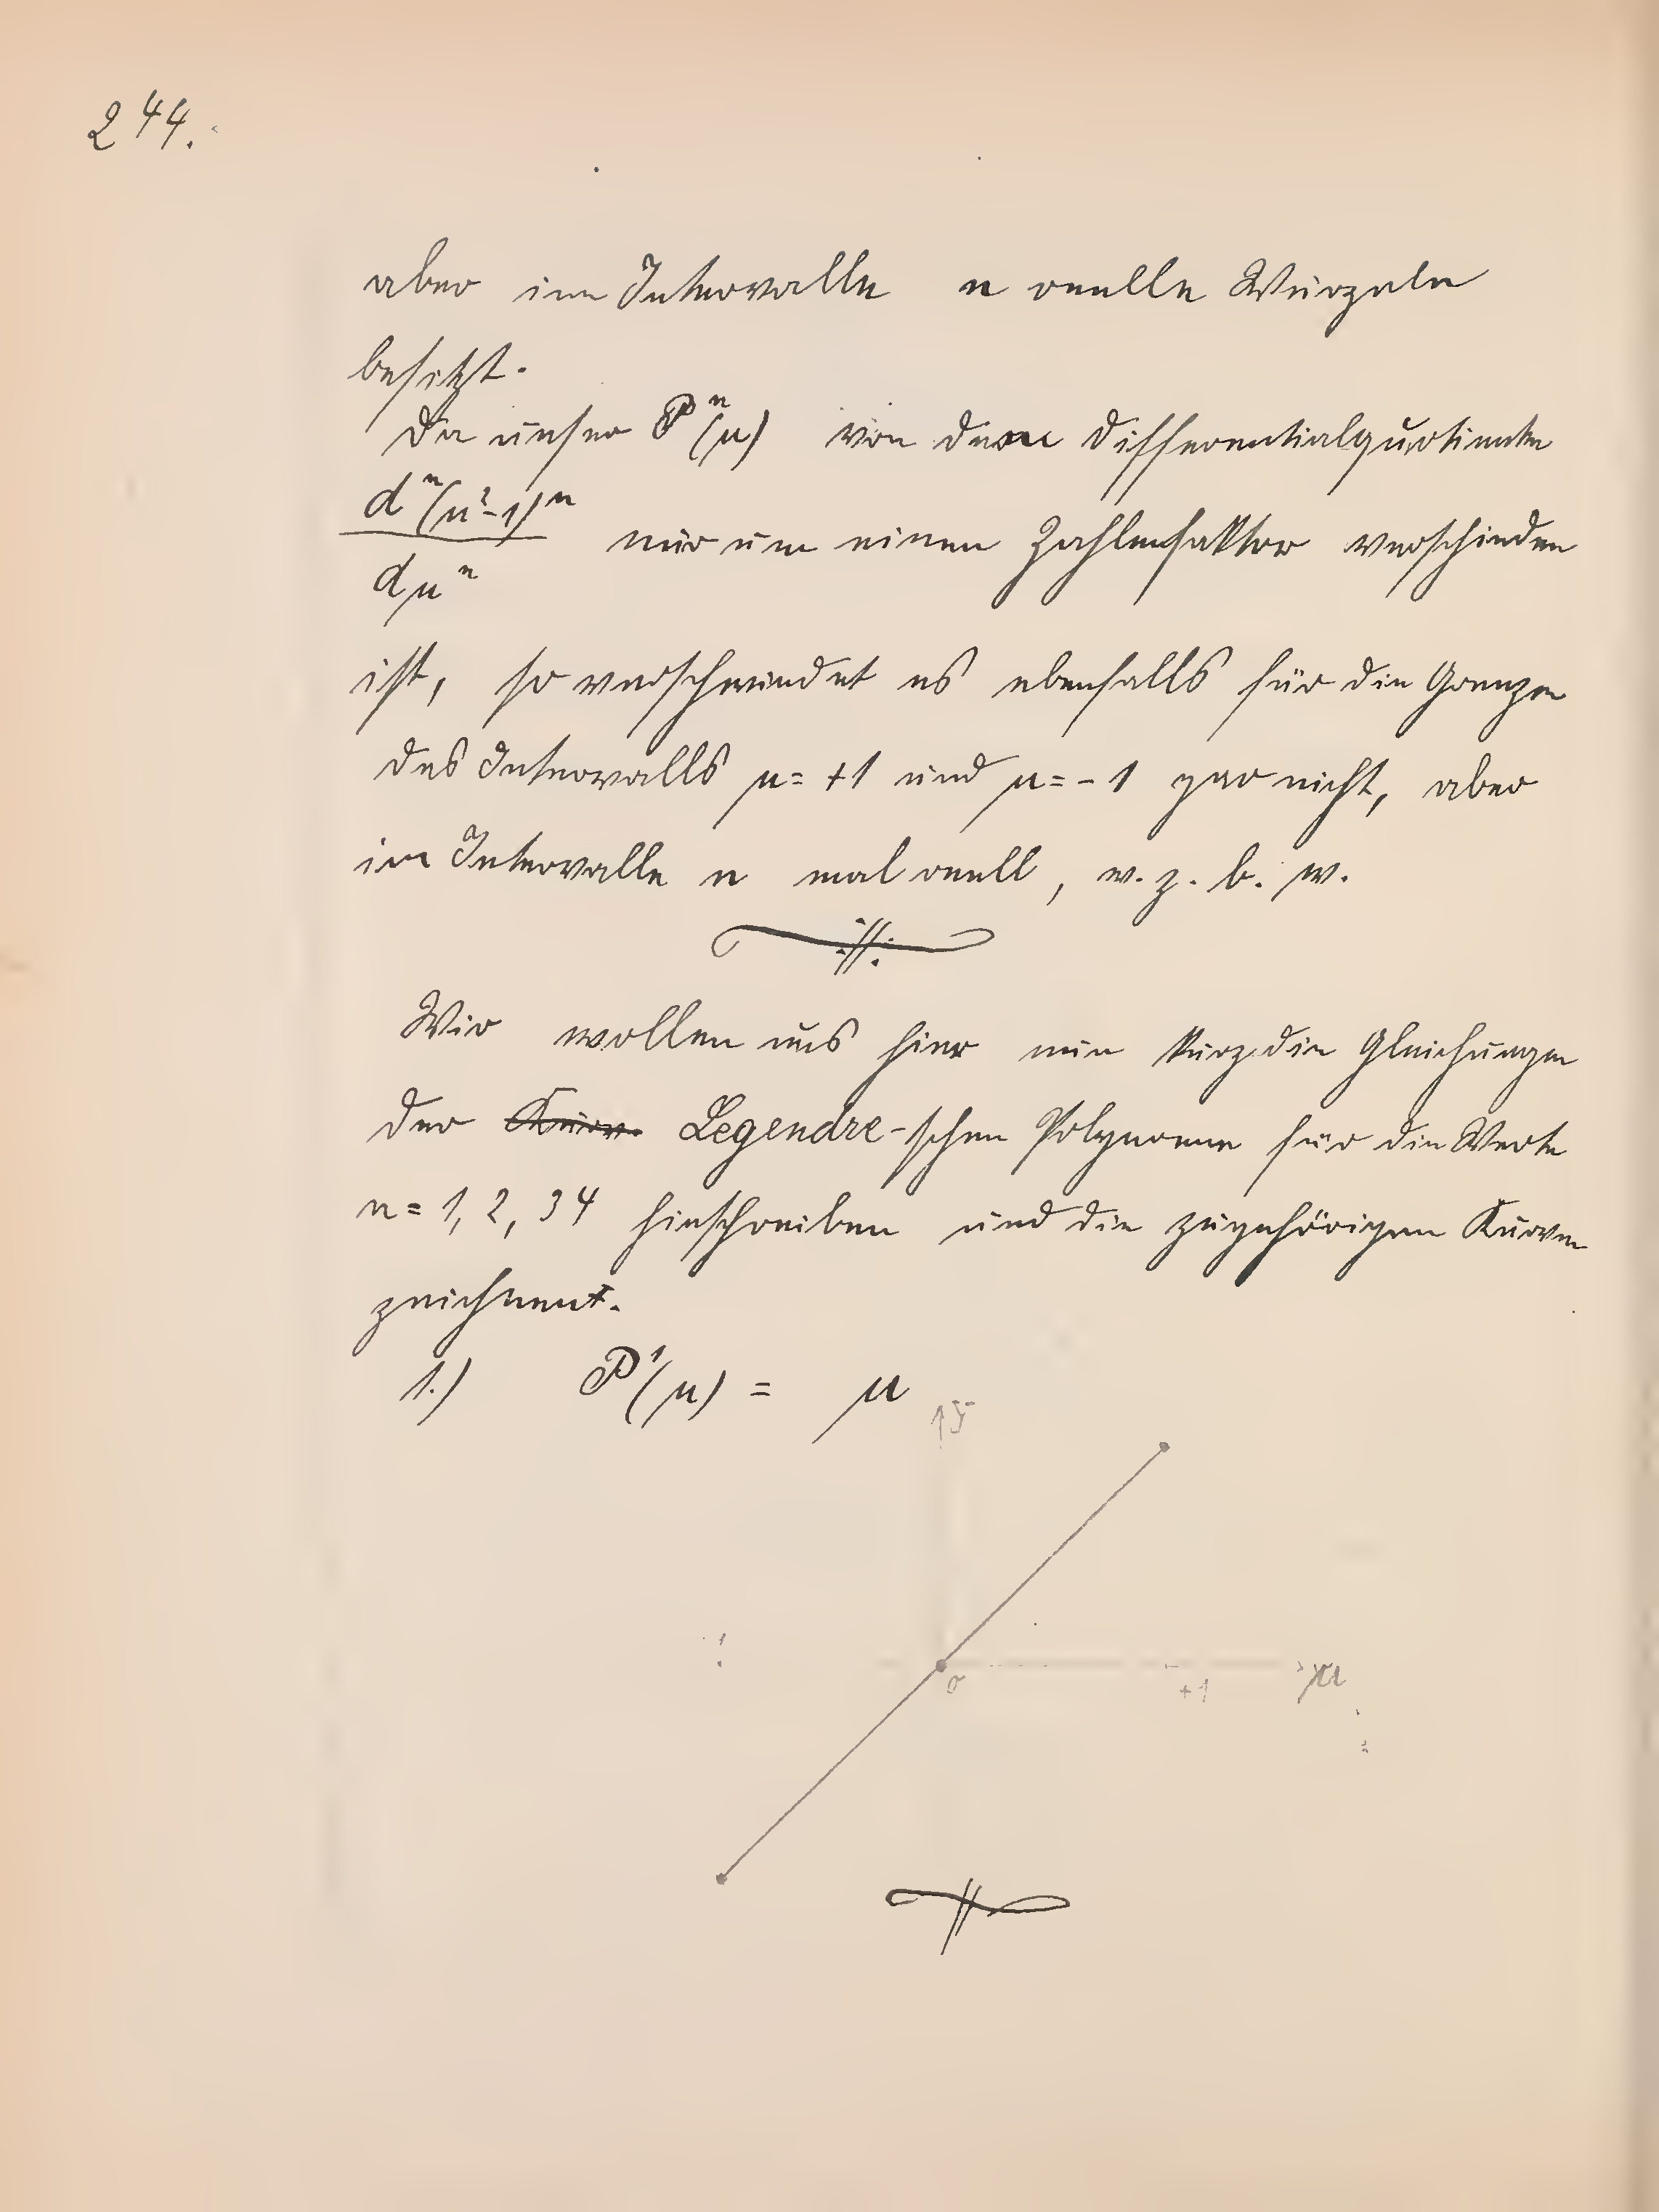 244.
aber im Intervalle n reelle Wurzeln
besitzt.
Da unser P^n(μ) von dem Differentialquotienten
d^n(μ²-1)^n / dμ^n nur um einen Zahlenfaktor verschieden
ist, so verschwindet es ebenfalls für die Grenzen
des Intervalls μ = +1 und μ = -1 gar nicht, aber
im Intervalle n mal reell, w. z. b. w.
Wir wollen uns hier nun kurz die Gleichungen
der Kurv. Legendre-schen Polynome für die Werte
n = 1, 2, 3 4 hinschreiben und die zugehörigen Kurven
zeichnen.
1.) P^1(μ) = μ
y
1
0
+1
μ